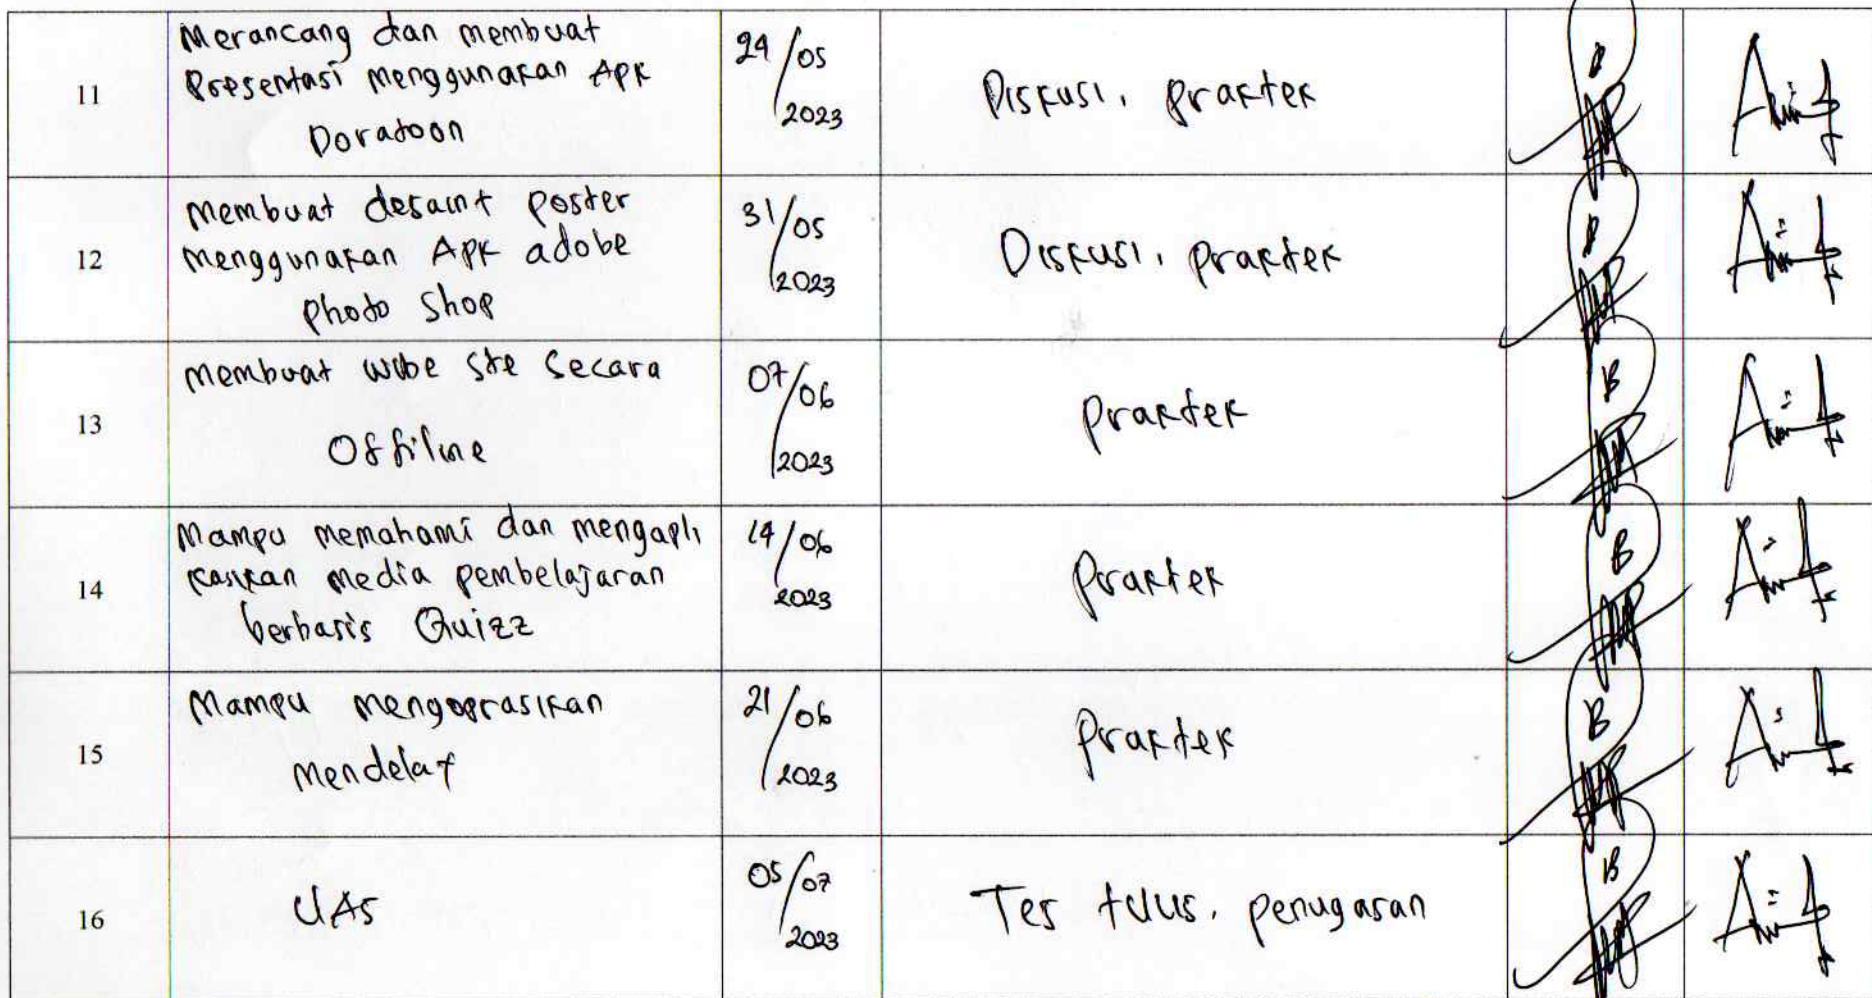 11
Merancang dan membuat
Presentasi menggunakan Apk
Doratoon
24/05
2023
Diskusi, praktek
12
Membuat desaint poster
menggunakan Apk adobe
photo shop
31/05
2023
Diskusi, praktek
13
Membuat wibe ste secara
Offiline
07/06
2023
praktek
14
Mampu memahami dan mengapli
kasikan media pembelajaran
berbasis Quizz
14/06
2023
praktek
15
Mampu mengoprasikan
Mendelay
21/06
2023
praktek
16
UAS
05/07
2023
Tes tulis, penugasan